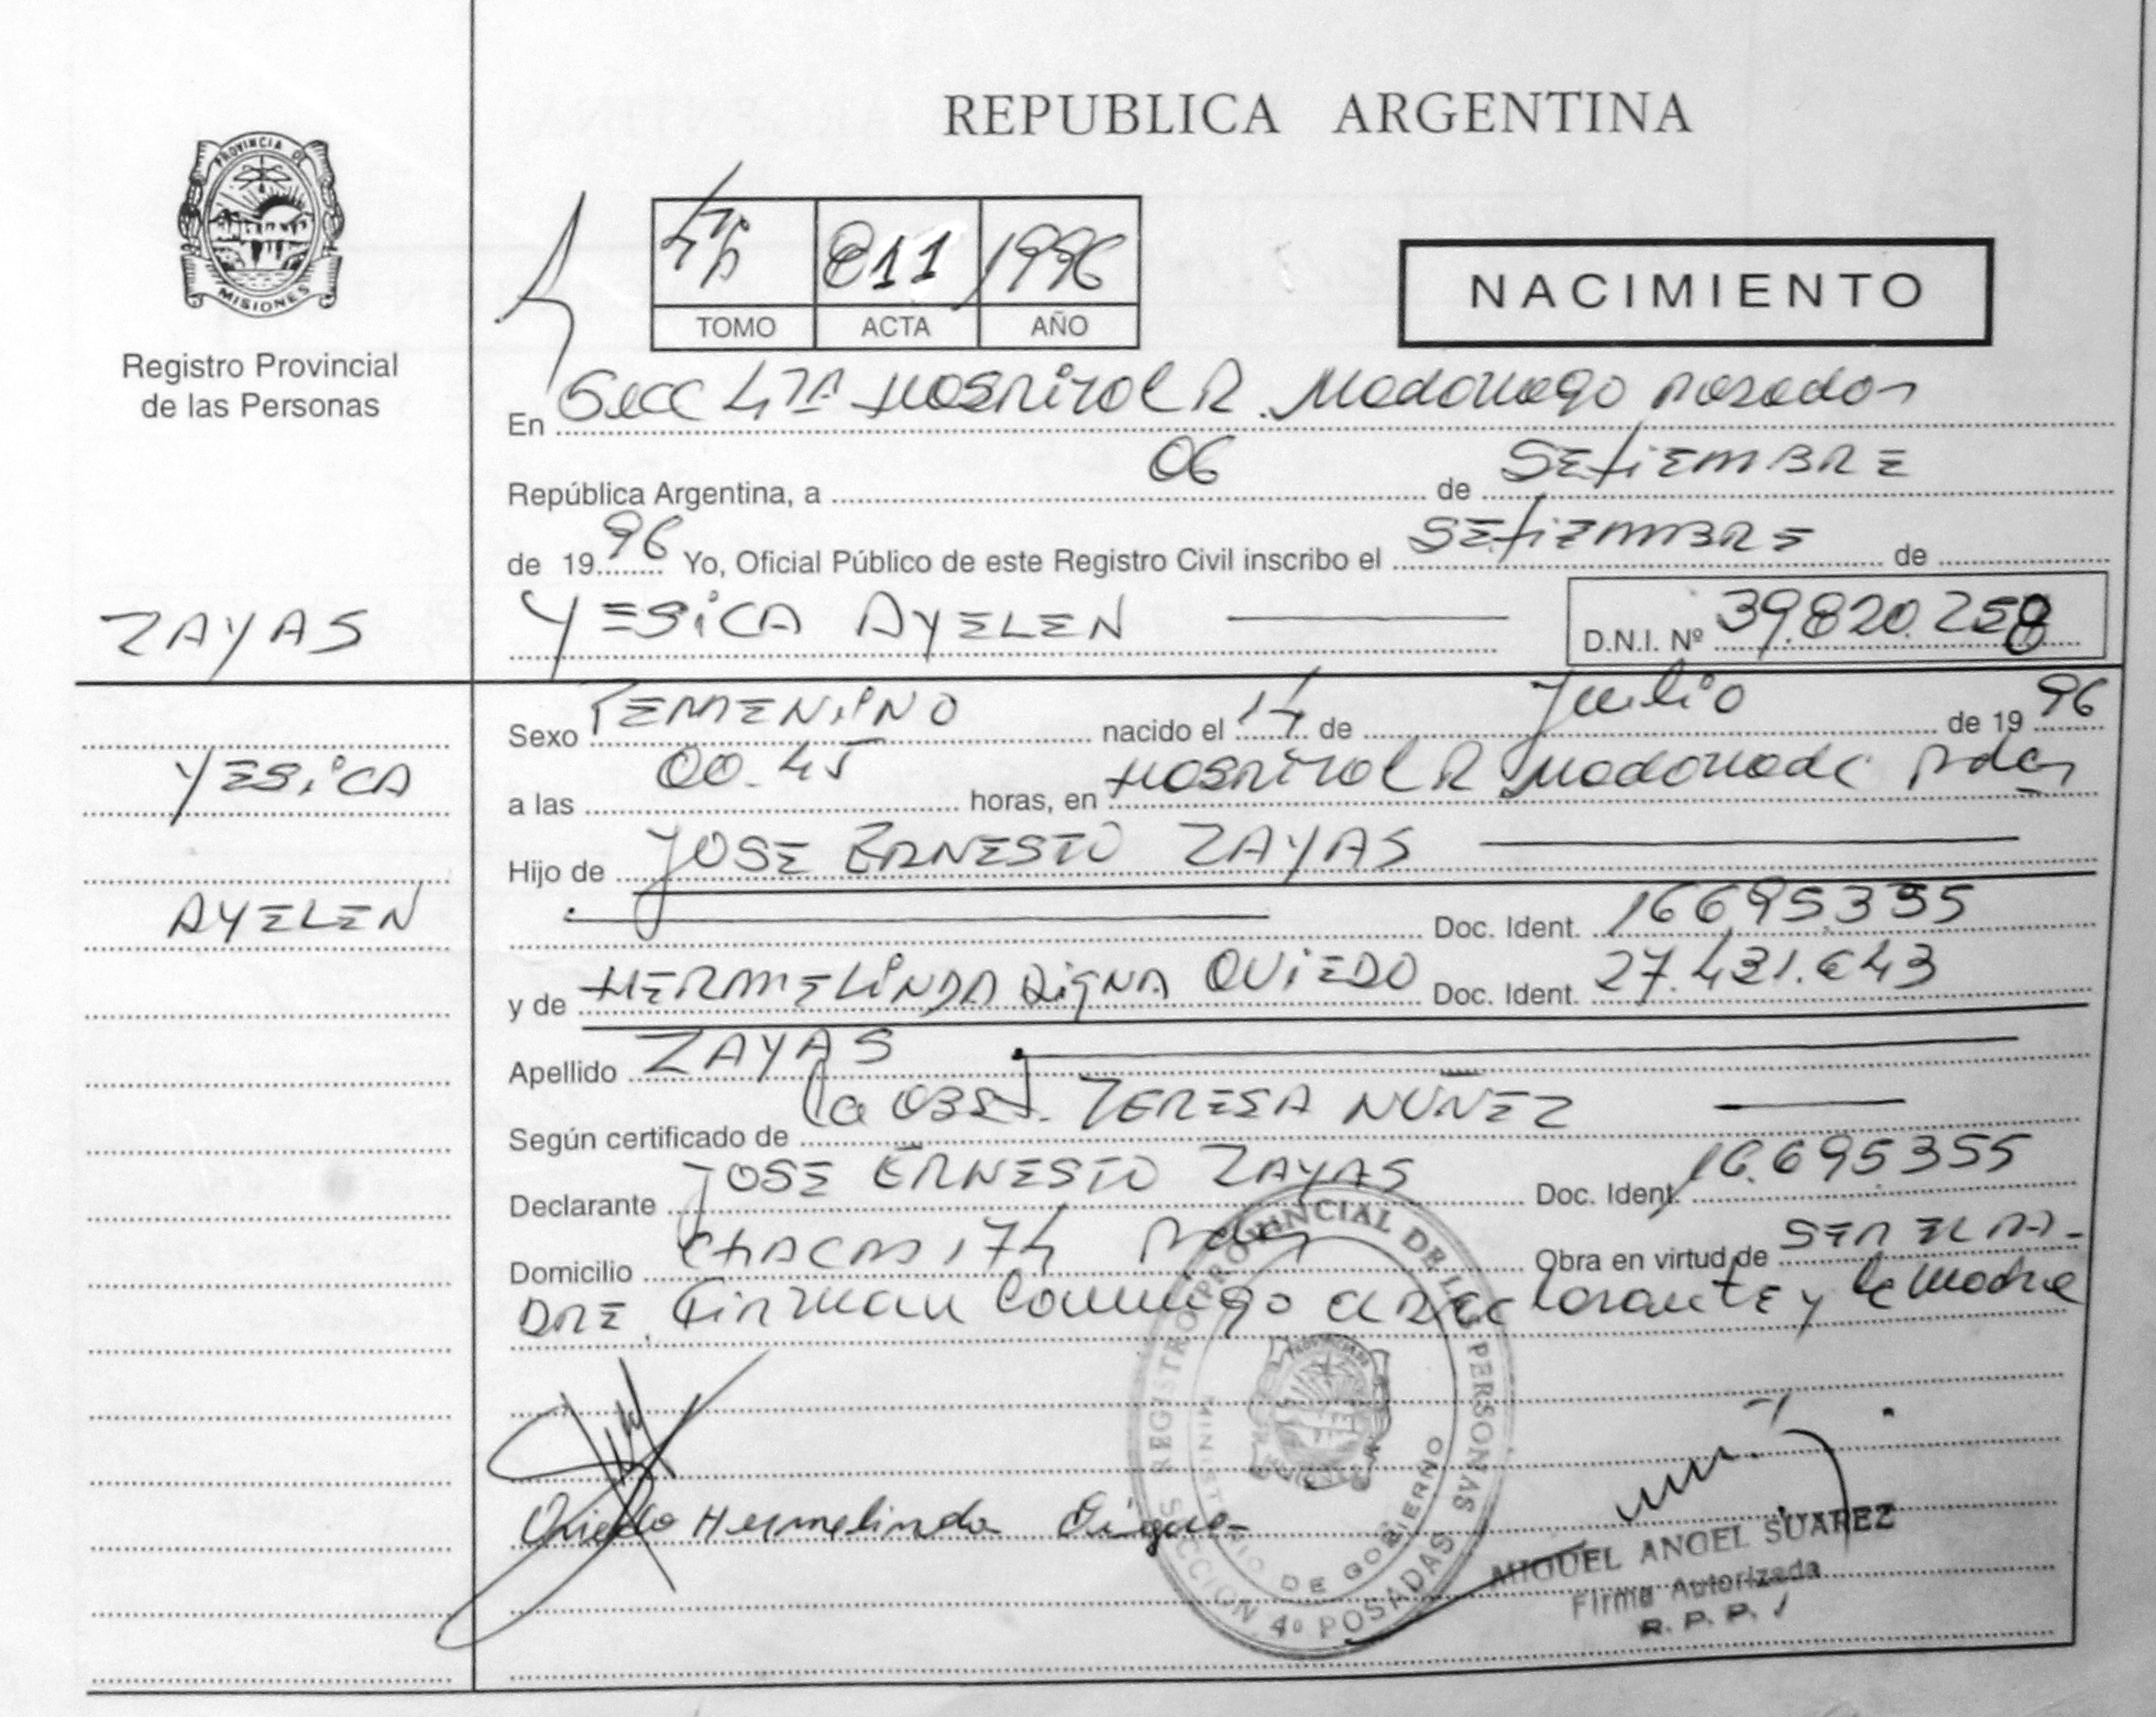 REPUBLICA ARGENTINA
PROVINCIA DE
MISIONES
Registro Provincial
de las Personas
811 1996
TOMO ACTA AÑO
NACIMIENTO
En Secc 4TA HOSPITAL R. Madariaga Posadas
República Argentina, a 06 de SETIEMBRE
de 1996 Yo, Oficial Público de este Registro Civil inscribo el SETIEMBRE de
ZAYAS
YESICA AYELEN
D.N.I. Nº 39.820.258
YESICA
AYELEN
Sexo FEMENINO nacido el 14 de Julio de 1996
a las 00.45 horas, en HOSPITAL R. Pdas
Hijo de JOSE ERNESTO ZAYAS
Doc. Ident. 16695355
y de HERMELINDA DIGNA OVIEDO Doc. Ident. 27.421.643
Apellido ZAYAS
Según certificado de la OBST. TERESA NUÑEZ
Declarante JOSE ERNESTO ZAYAS Doc. Ident. 16.695355
Domicilio CHACRA 174 Pdas Obra en virtud de SER EL PA-
DRE. Firman Conmigo el Declarante y la Madre
Oviedo Hermelinda Digna
REGISTRO PROVINCIAL DE LAS PERSONAS
MINISTERIO DE GOBIERNO
SECCION 4º POSADAS
MIGUEL ANGEL SUAREZ
Firma Autorizada
R. P. P.